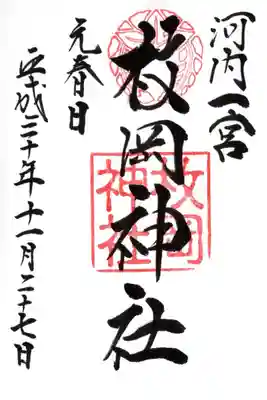 河内一宮
枚岡神社
元春日
平成三十年十一月二十七日
枚岡
神社